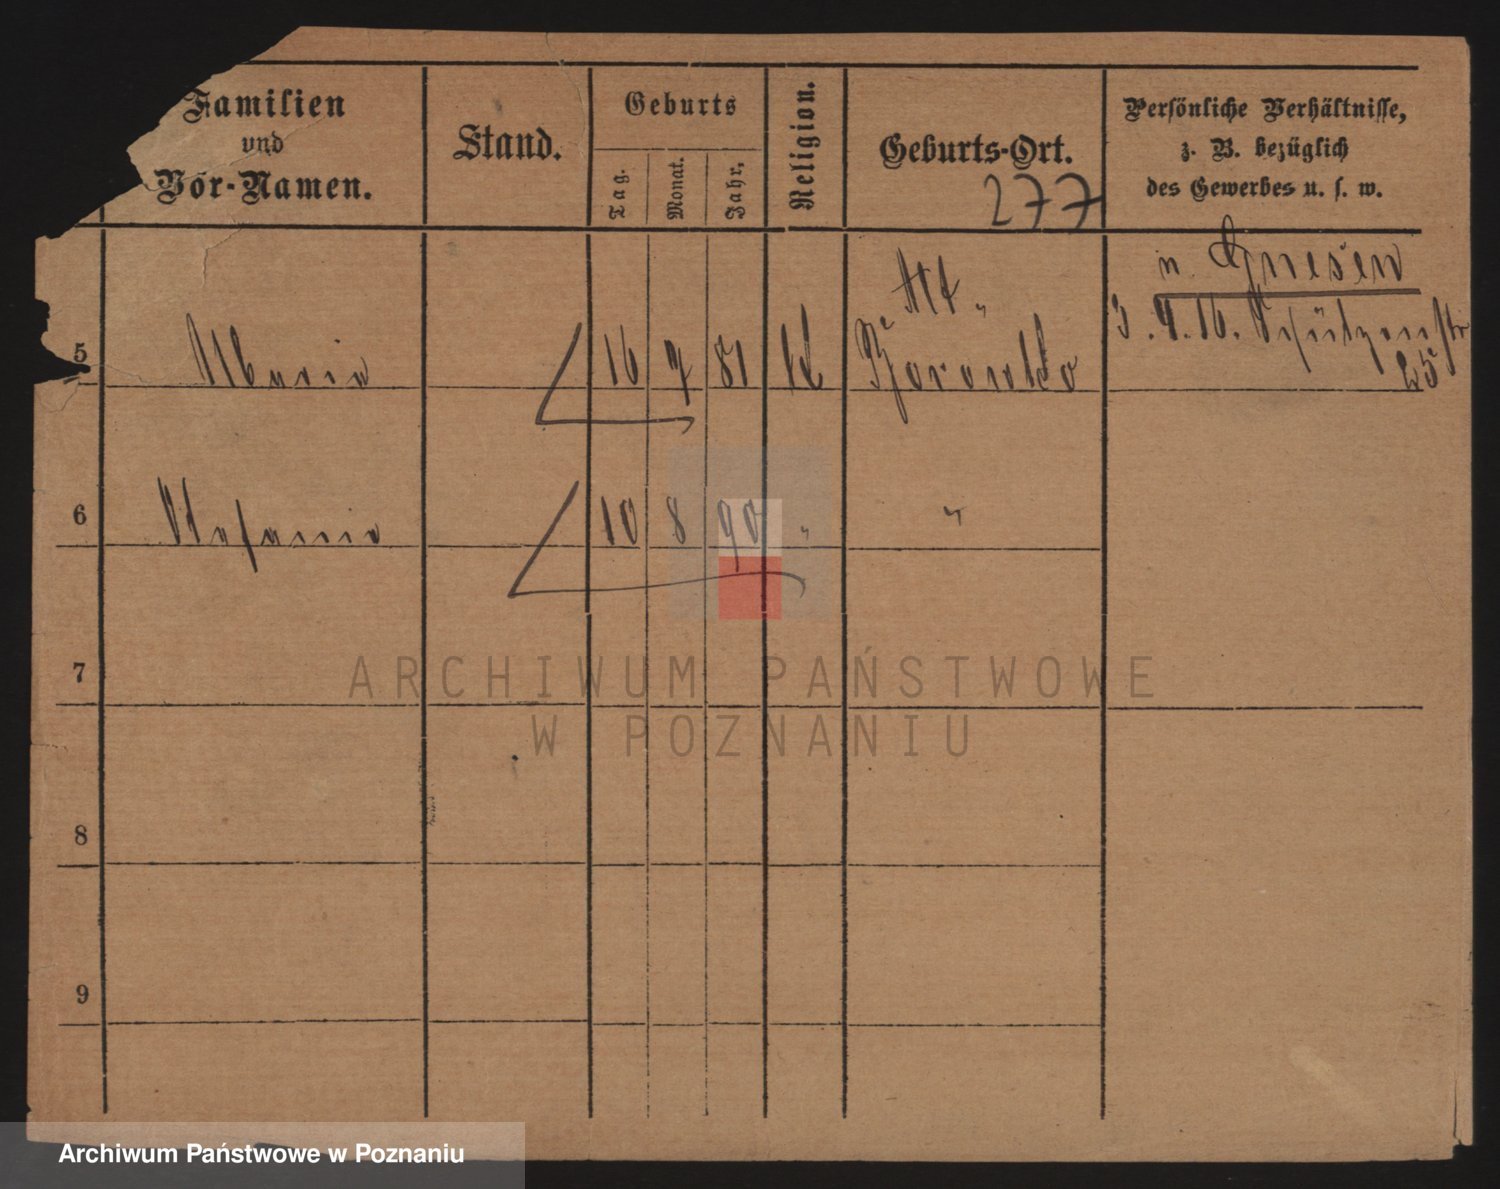 Familien
und
Vor-Namen.
Stand.
Geburts
Tag.
Monat.
Jahr.
Religion.
Geburts-Ort.
277
Persönliche Verhältnisse,
z. B. bezüglich
des Gewerbes u. s. w.
n. Gnesen
3. 4. 16. Schützenstr
25
5
Maria
16 7 81
Alt
Boronko
6
Stefania
10 8 90 "
"
7
8
9
ARCHIWUM PAŃSTWOWE
W POZNANIU
Archiwum Państwowe w Poznaniu